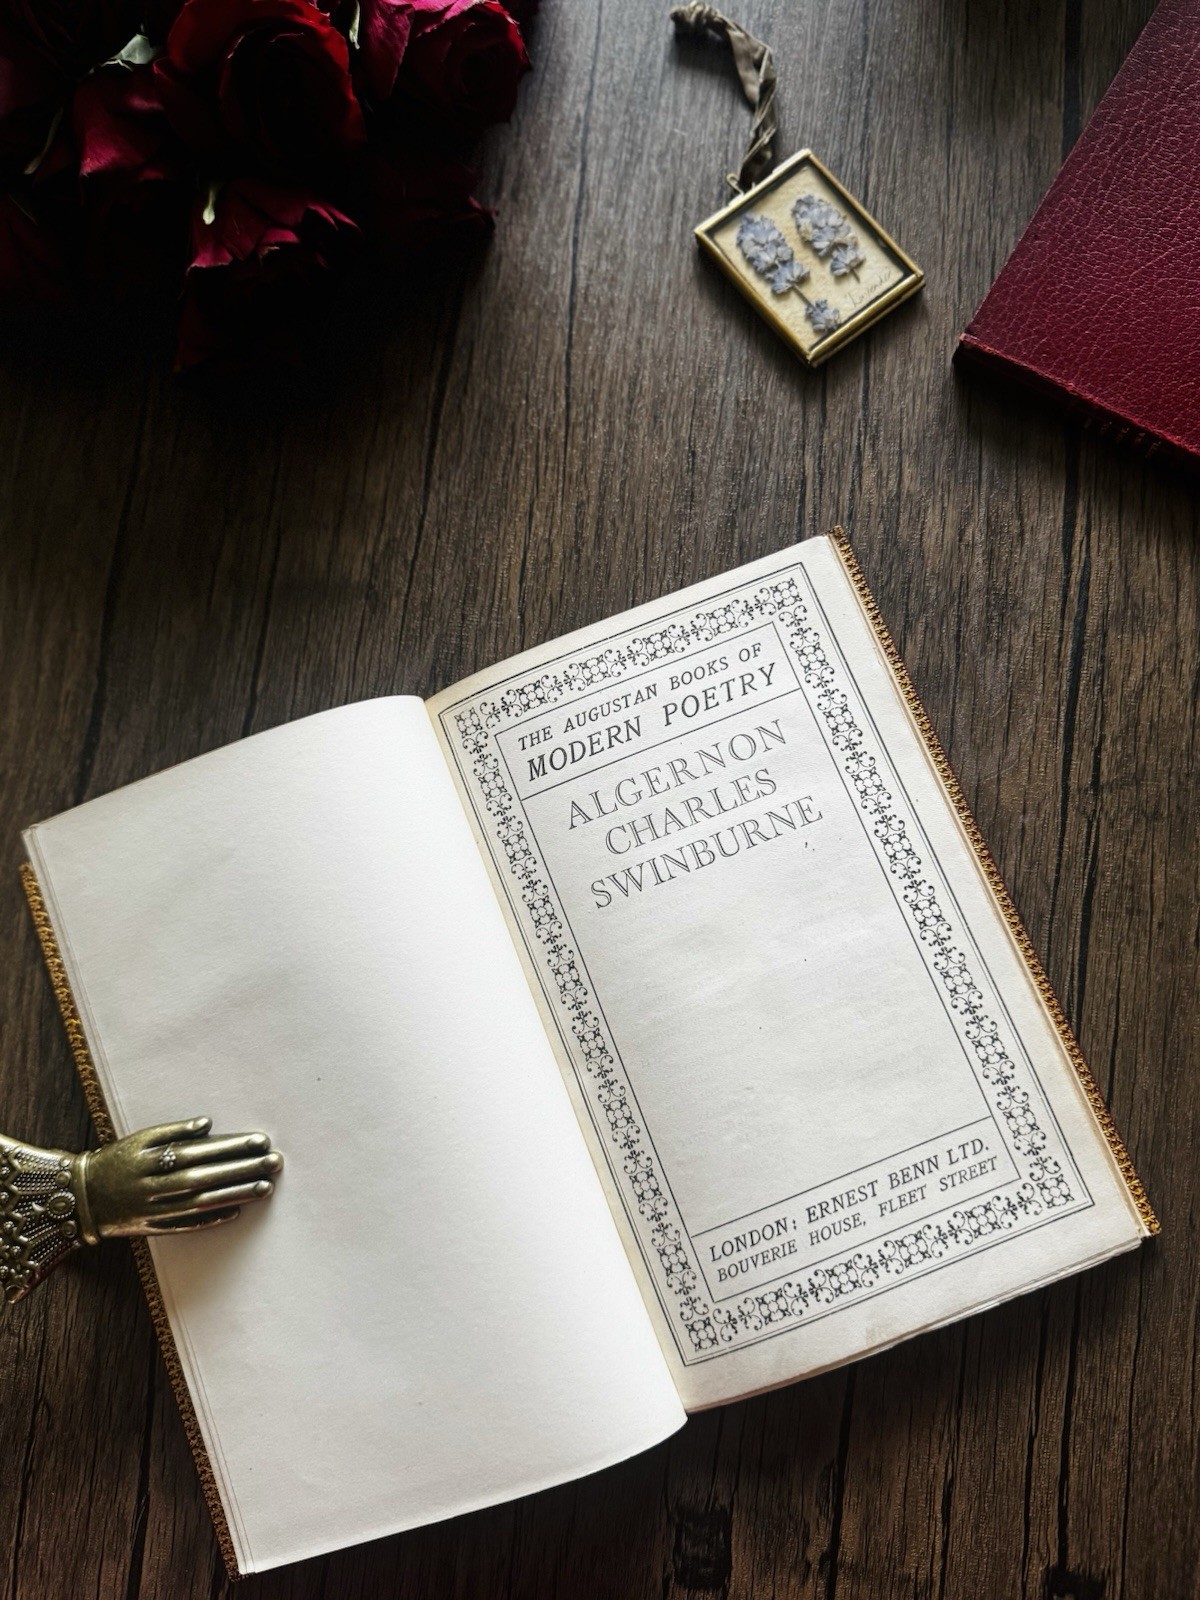 THE AUGUSTAN BOOKS OF
MODERN POETRY
ALGERNON
CHARLES
SWINBURNE
LONDON: ERNEST BENN LTD.
BOUVERIE HOUSE, FLEET STREET